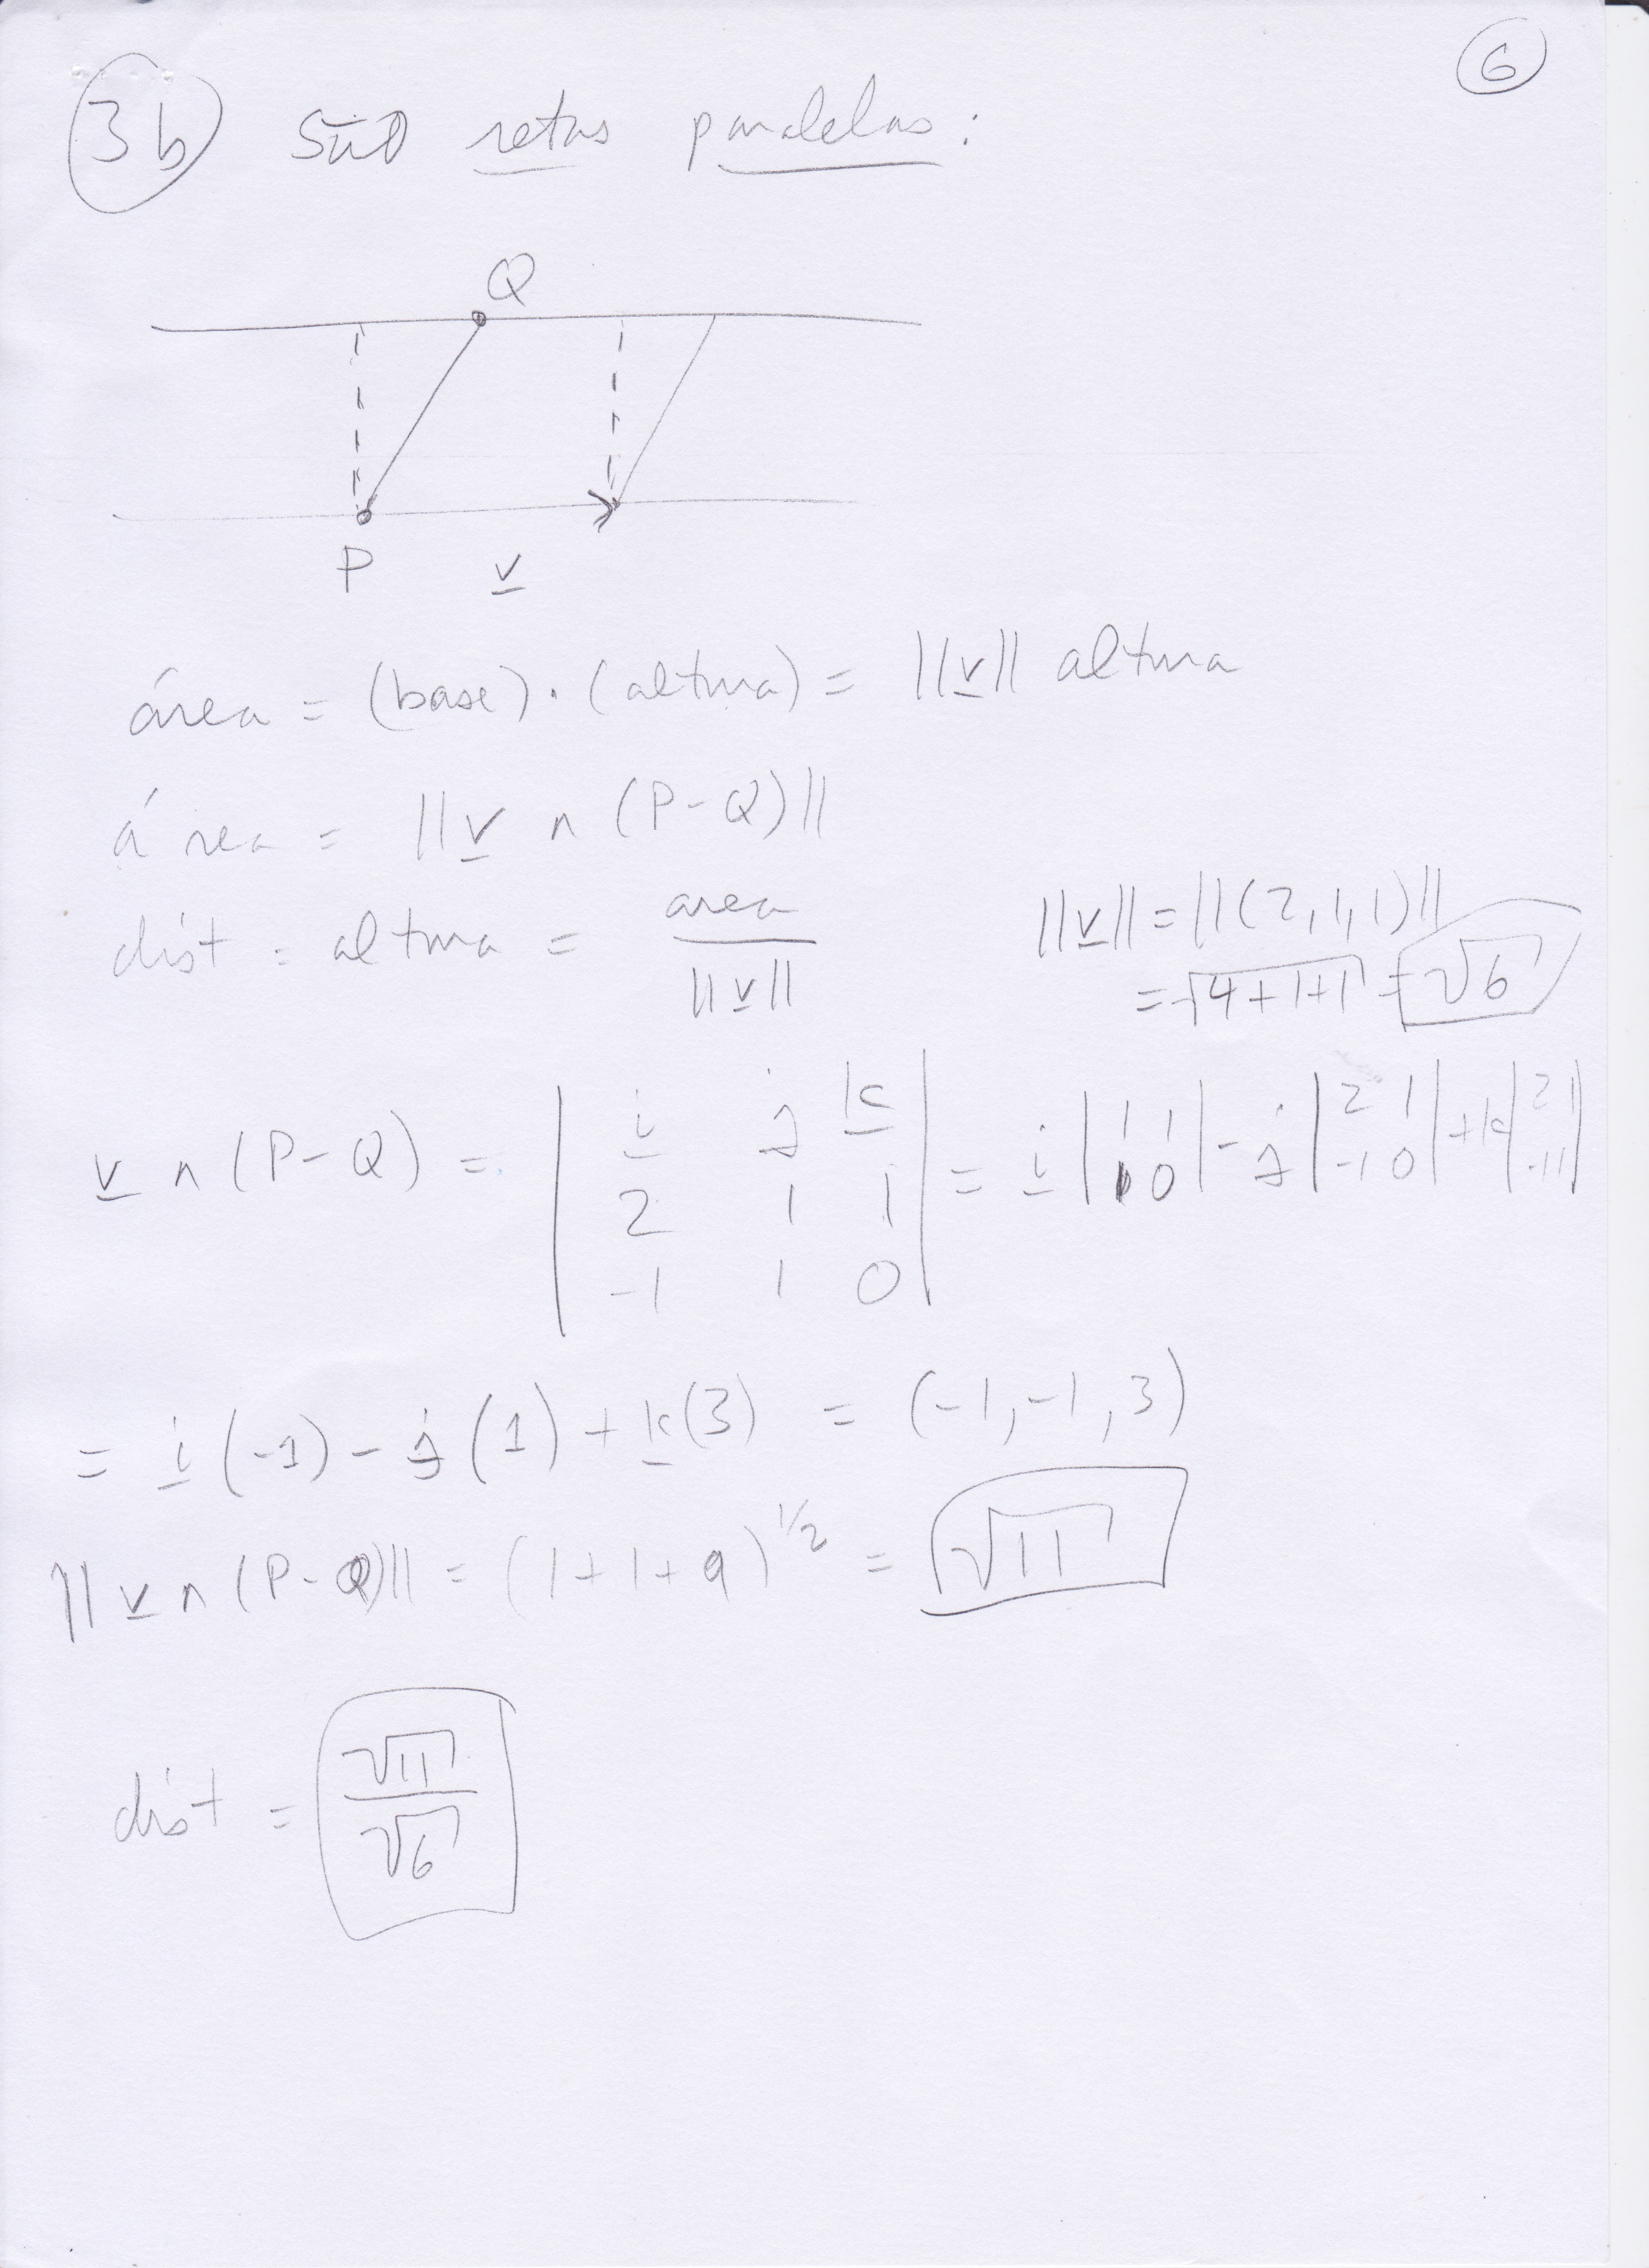 6
3b São retas paralelas:
Q
P v
área = (base) · (altura) = ||v|| altura
área = ||v ∧ (P-Q)||
dist = altura = area / ||v||
||v|| = ||(2,1,1)||
= √4+1+1 = √6
v ∧ (P-Q) = | i j k | = i |1 1| - j |2 1| + k |2 1|
| 2 1 1 | |1 0| |-1 0| |-1 1|
| -1 1 0 |
= i(-1) - j(1) + k(3) = (-1,-1,3)
||v ∧ (P-Q)|| = (1+1+9)^1/2 = √11
dist = √11 / √6